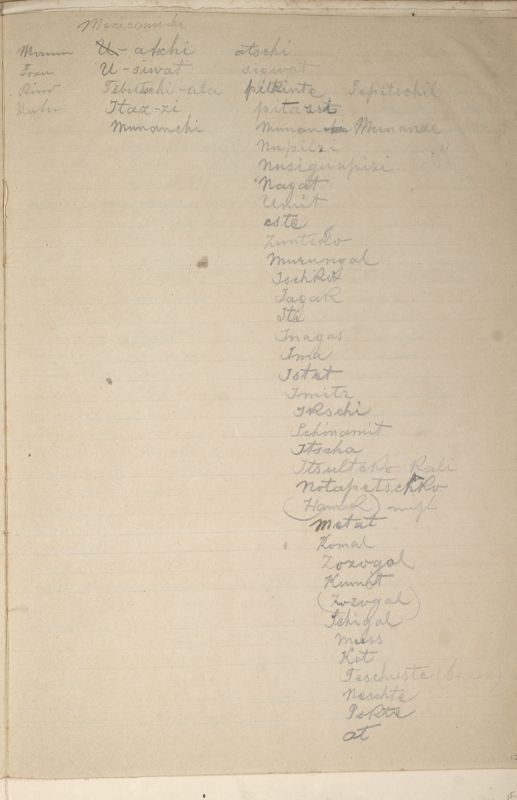 Mexicanische
Mann U-atschi otschi
Frau U-siwat siowat
Kind Tebutschi-ala piltzinte Tepitschil
Vater Itaz-zi pitatzi
Munanchi Munan Munanze
Nupilzi
Nusiguapizi
Nagat
Umit
este
Zuntsko
Murungal
Ischko
Tagak
Ite
Inagas
Ima
Istet
Imitz
Ikschi
Schinamit
Itscha
Itsulteko Kali
Notapetschko
(Hamak)
Metat
Komal
Zozogol
Kumit
(Zozogal)
Tchigal
Muss
Kot
Teschuste
Neschte
at